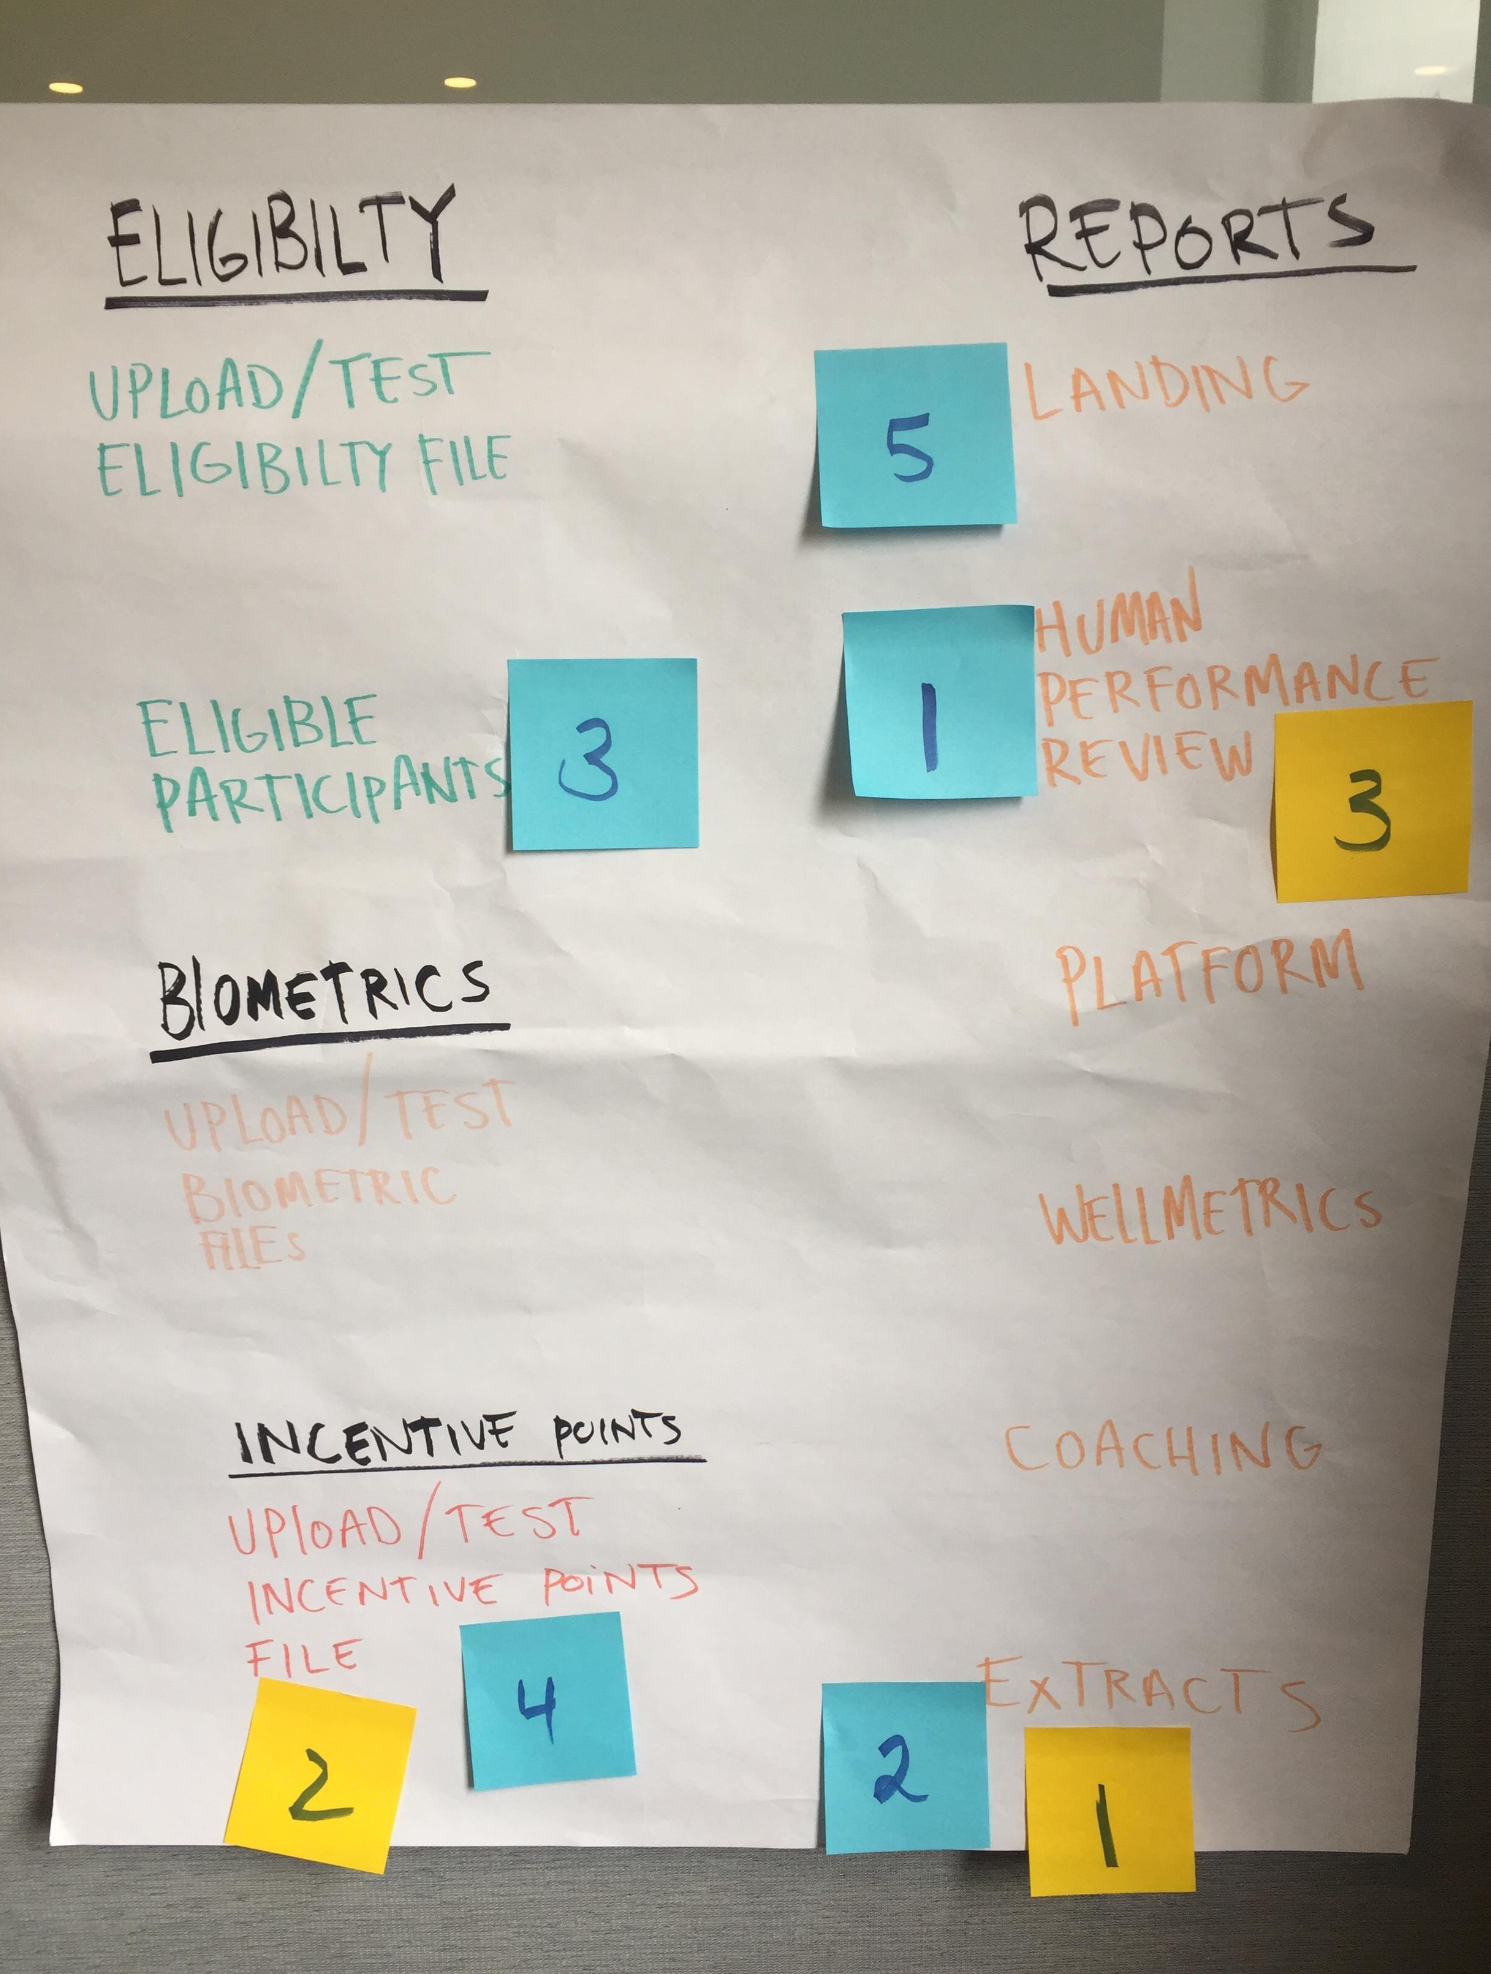 ELIGIBILTY
UPLOAD/TEST
ELIGIBILTY FILE
ELIGIBLE
PARTICIPANTS
3
BIOMETRICS
UPLOAD/TEST
BIOMETRIC
FILES
INCENTIVE POINTS
UPLOAD/TEST
INCENTIVE POINTS
FILE
4
2
REPORTS
LANDING
5
HUMAN
PERFORMANCE
REVIEW
1
3
PLATFORM
WELLMETRICS
COACHING
EXTRACTS
2
1